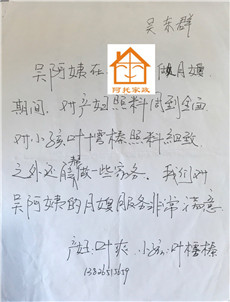 吴东群
吴阿姨在 做月嫂
阿托家政
期间，对产妇照料周到全面
对小孩叶榛榛照料细致
之外还帮做一些家务。我们对
吴阿姨的月嫂服务非常满意
产妇：叶爽 小孩：叶榛榛